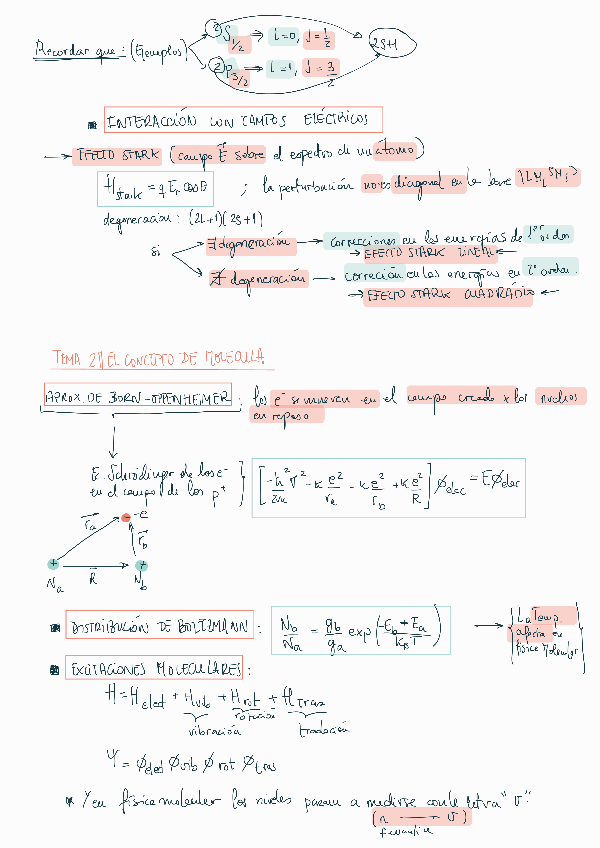 Recordar que: (Ejemplos)
²S1/2 ⇒ l=0, J=1/2
2S+1
²P3/2 ⇒ l=1, J=3/2
INTERACCIÓN CON CAMPOS ELÉCTRICOS
→ EFECTO STARK (campo E sobre el espectro de un átomo)
H stark = q E r cos θ ; la perturbación no es diagonal en la base
degeneración: (2L+1)(2S+1)
si
∃ degeneración → correcciones en las energías de 1er orden
→ EFECTO STARK LINEAL ←
∄ degeneración → corrección en las energías en 2º orden.
→ EFECTO STARK CUADRÁTICO ←
TEMA 2|| EL CONCEPTO DE MOLÉCULA
APROX. DE BORN-OPPENHEIMER: los e⁻ se mueven en el campo creado x los núcleos
en reposo
E. Schrödinger de los e⁻
en el campo de los p⁺
[-ħ²/2m ∇² - k e²/ra - k e²/rb + k e²/R] ϕelec = Eϕelec
- -e
ra
rb
+ R +
Na Nb
DISTRIBUCIÓN DE BOLTZMANN: Nb/Na = gb/ga exp(-Eb+Ea/KBT) → La Temp.
afecta en
física molecular
EXCITACIONES MOLECULARES:
H = Helect + Hvib + Hrot + Htras
rotación
vibración traslación
Ψ = ϕelect ϕvib ϕrot ϕtras
* Y en física molecular los niveles pasan a medirse con la letra "v".
(n → v)